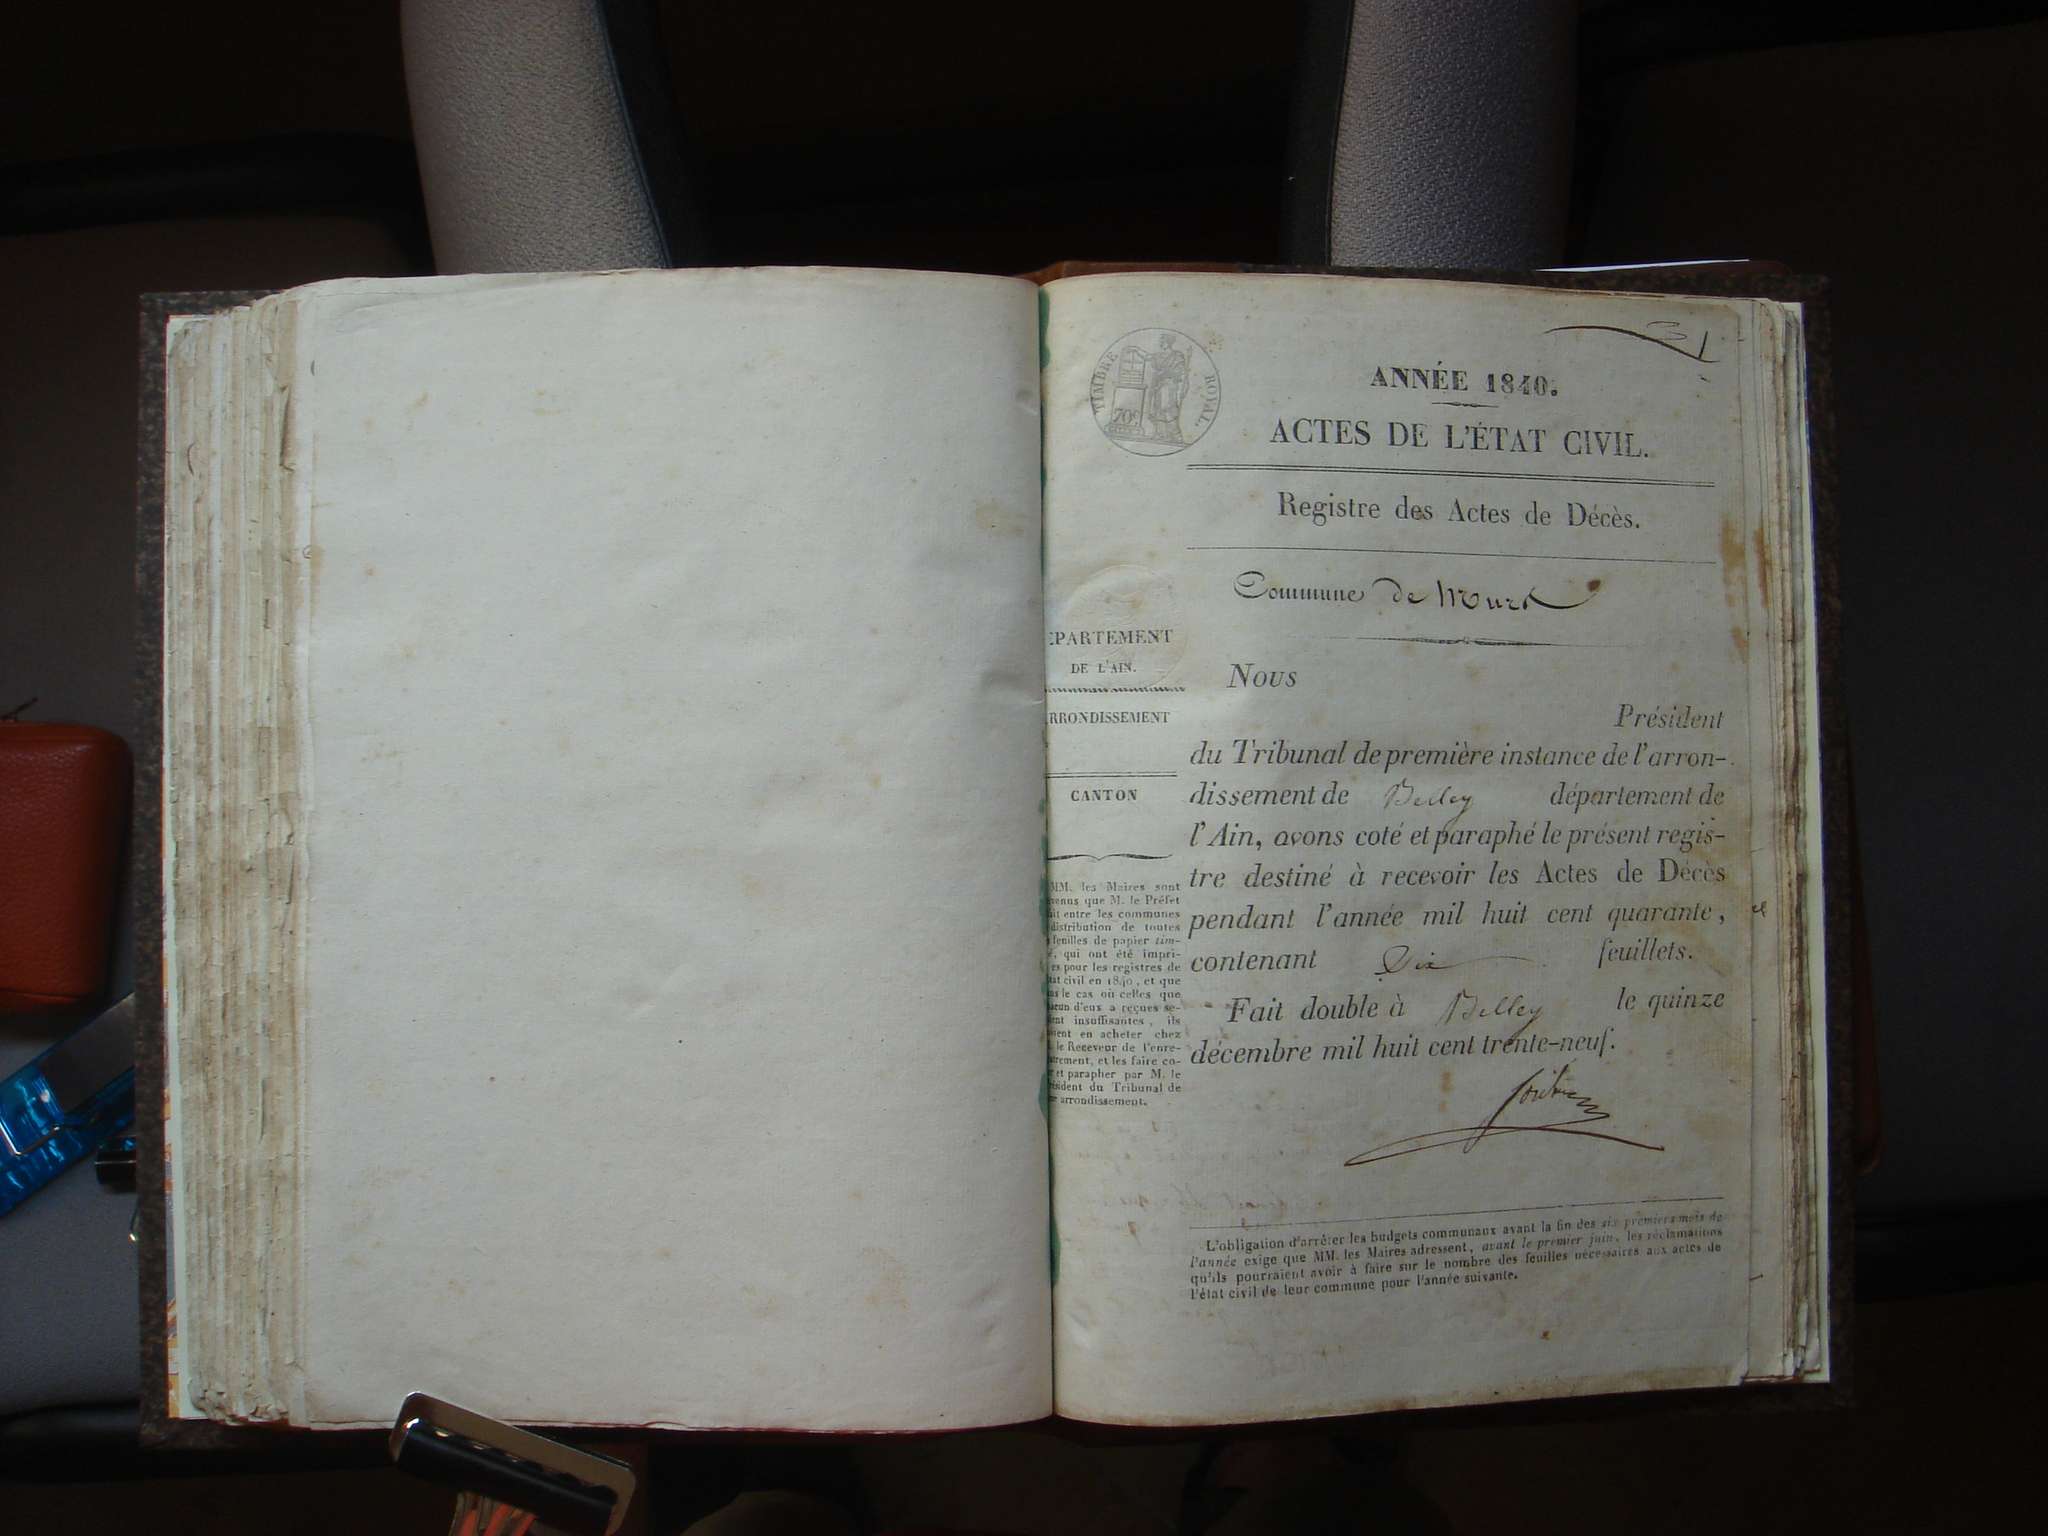 31
TIMBRE ROYAL.
70c.
ANNÉE 1840.
ACTES DE L'ÉTAT CIVIL.
Registre des Actes de Décès.
Commune de Murs
EPARTEMENT
DE L'AIN.
RRONDISSEMENT
CANTON
MM. les Maires sont
venus que M. le Préfet
ait entre les communes
distribution de toutes
s feuilles de papier tim-
é, qui ont été impri-
es pour les registres de
tat civil en 1840, et que
ns le cas où celles que
acun d'eux a reçues se-
ient insuffisantes, ils
ssent en acheter chez
. le Receveur de l'enre-
strement, et les faire co-
r et parapher par M. le
résident du Tribunal de
arrondissement.
Nous
Président
du Tribunal de première instance de l'arron-
dissement de Belley département de
l'Ain, avons coté et paraphé le présent regis-
tre destiné à recevoir les Actes de Décès
pendant l'année mil huit cent quarante,
contenant Six feuillets.
Fait double à Belley le quinze
décembre mil huit cent trente-neuf.
L'obligation d'arrêter les budgets communaux avant la fin des six premiers mois de
l'année exige que MM. les Maires adressent, avant le premier juin, les réclamations
qu'ils pourraient avoir à faire sur le nombre des feuilles nécessaires aux actes de
l'état civil de leur commune pour l'année suivante.